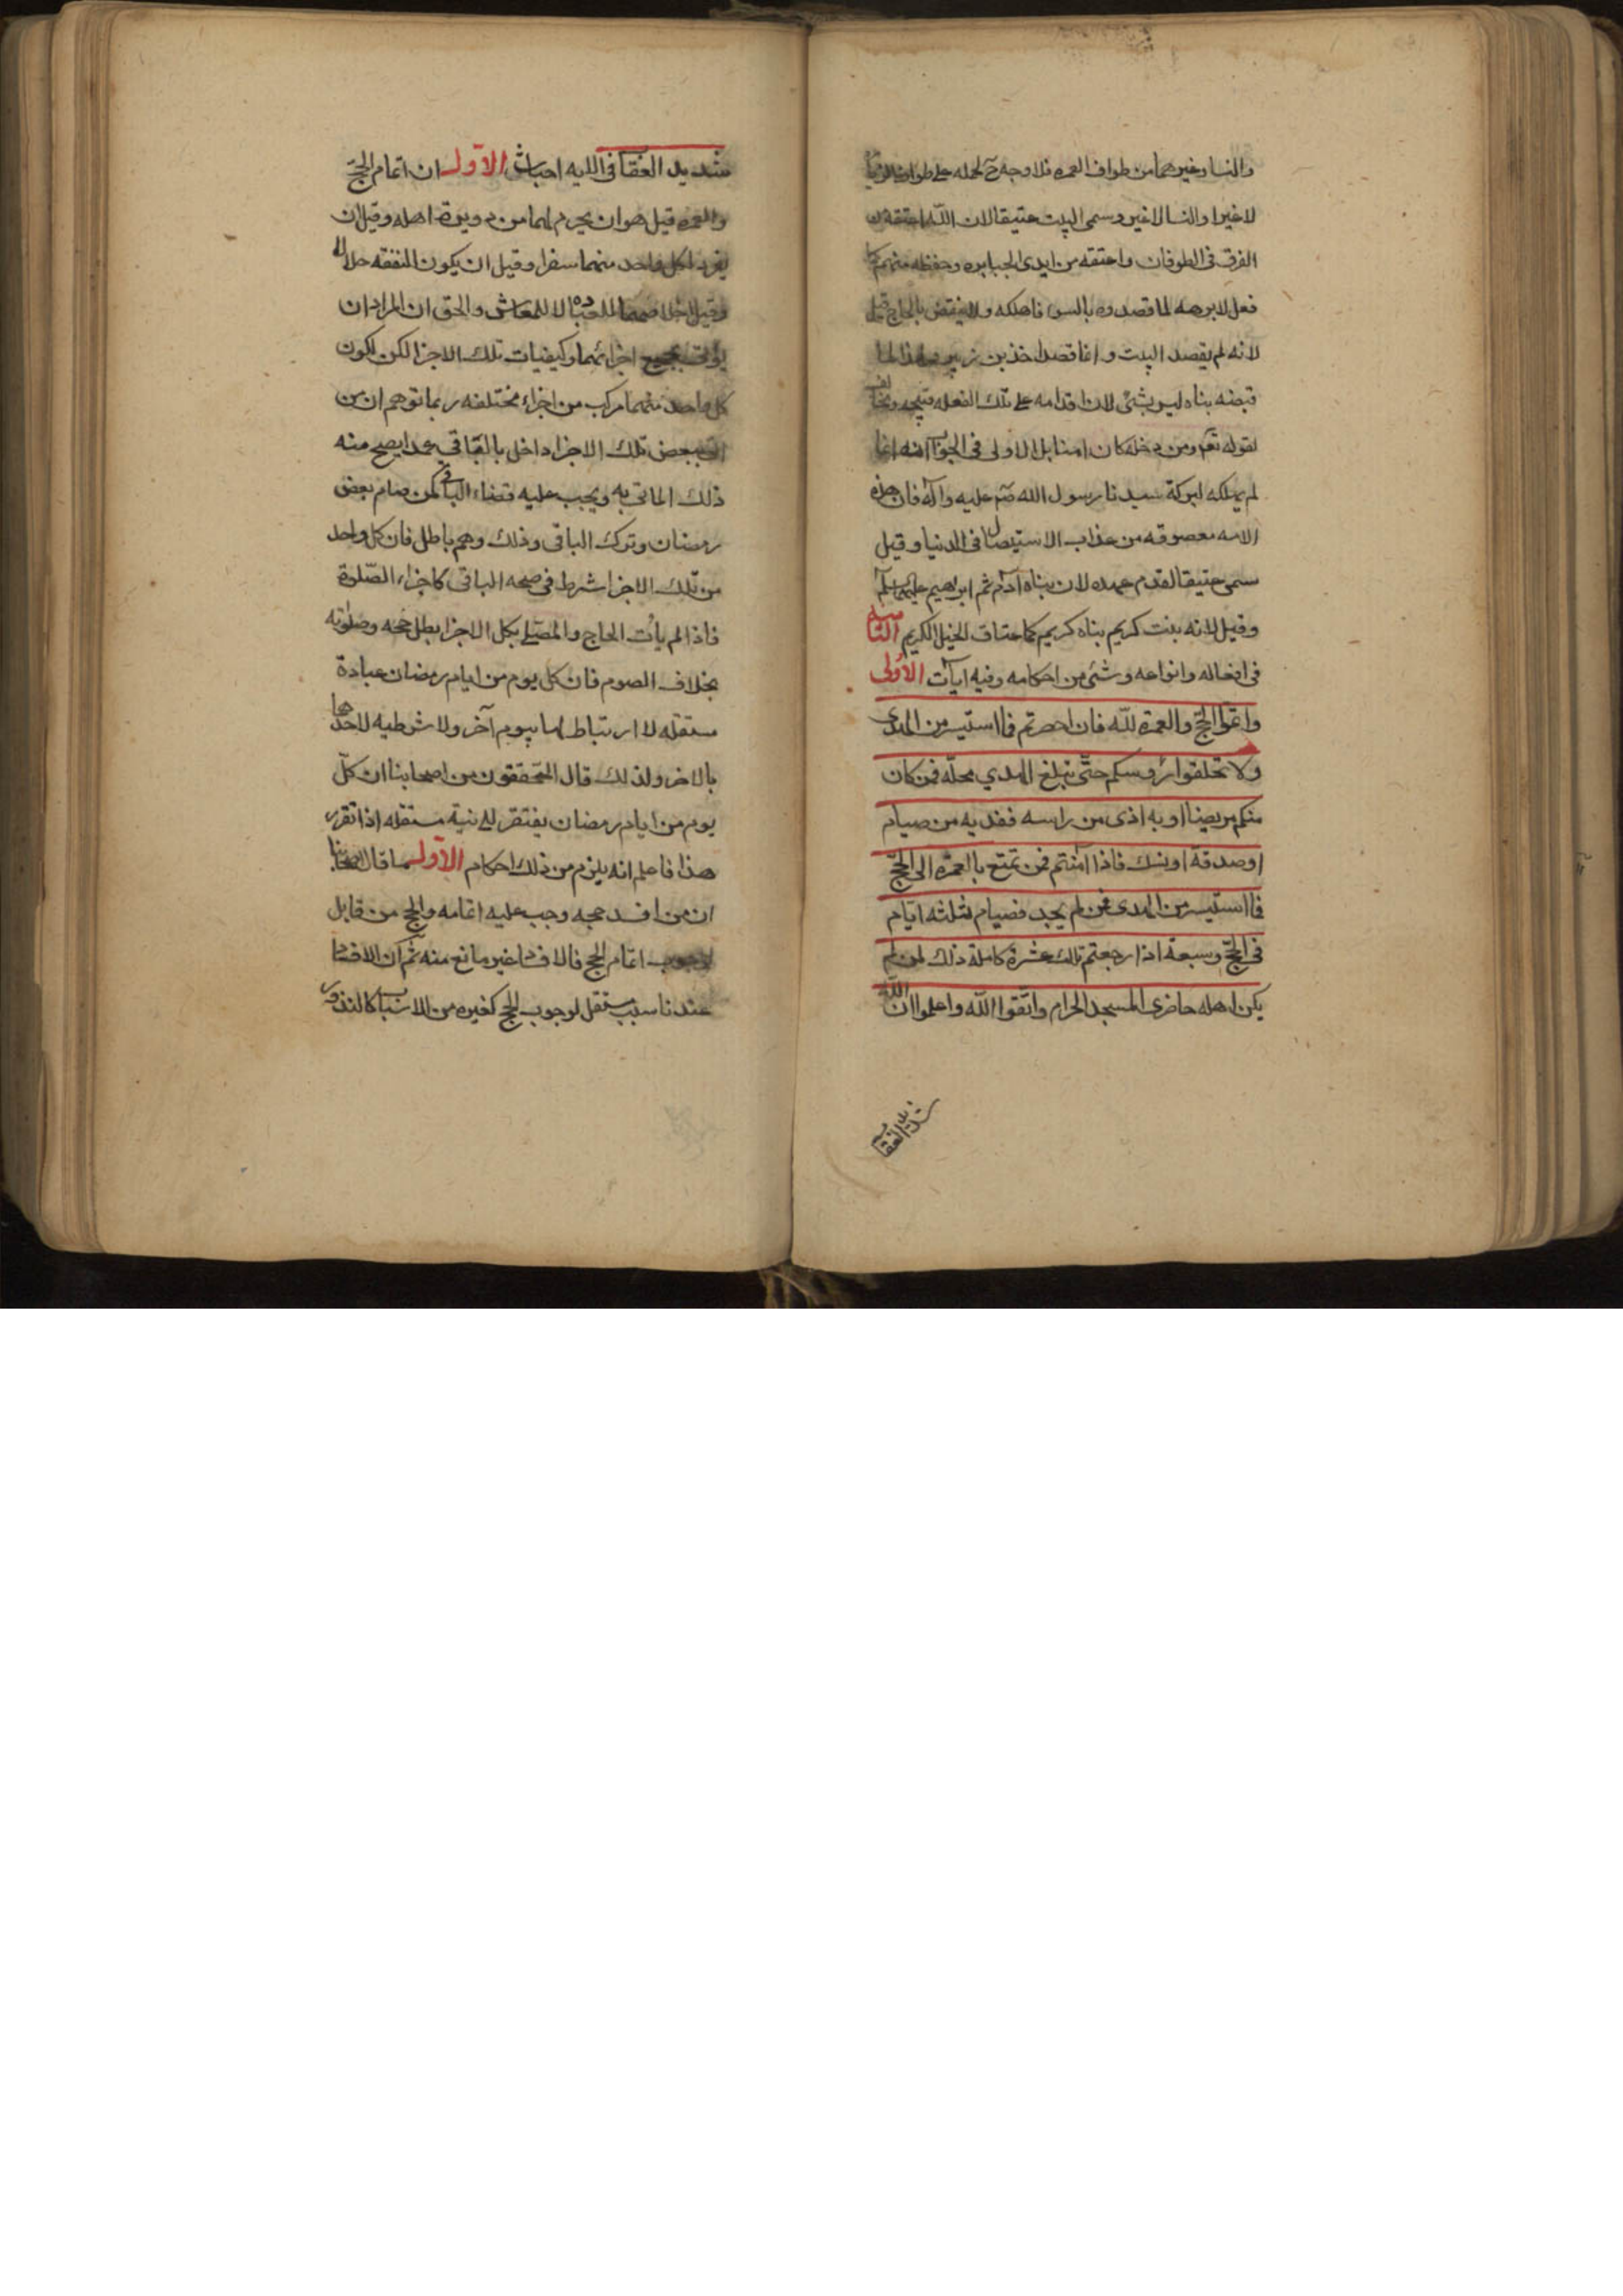 والنسا وغيرهما من طواف العمره فلا وجه ح لحمله على طواف الزيا
لا غير او النسا لا غير وسمى البيت عتيقا لان الله اعتقه من
الغرق فى الطوفان واعتقه من ايدى الجبابره وحفظه منهم كما
فعل لابرهه لما قصدوه بالسو فاهلكه ولا ينتقض بالحاج قيل
لانه لم يقصد البيت وانما قصد اخذ بن زبير
قبضه بناه ليس بشئ لان اقدامه على تلك الفعله قبيحه
لقوله تعم ومن دخله كان امنا بل الاولى فى الجواب انه انما
لم يهلكه لبركة سيدنا رسول الله صم عليه وآله فان هذه
الامه معصوقه من عذاب الاستيصال فى الدنيا وقيل
سمى عتيقا لقدم عهده لان بناه آدم ثم ابرهيم عليهما سلم
وقيل لانه بنت كريم بناه كريم كما عتاق الخيل الكريم
فى افعاله وانواعه وشئ من احكامه وفيه آيات الاولى
واتموا الحجّ والعمرة للّه فان احصرتم فما استيسر من الهدى
ولا تحلقوا رؤسكم حتّى يبلغ الهدي محلّه فمن كان
منكم مريضا او به اذى من راسه ففديه من صيام
او صدقة او نسك فاذا امنتم فمن تمتع بالعمره الى الحجّ
فما استيسر من الهدى فمن لم يجد فصيام ثلثه ايّام
فى الحجّ وسبعة اذا رجعتم تلك عشرة كاملة ذلك لمن لم
يكن اهله حاضرى المسجد الحرام واتّقوا اللّه واعلموا ان اللّه
شديد العقا
شديد العقا فى الايه ابحاث الاول ان اتمام الحجّ
والعمره قيل هو ان يحرم لهما من دويرة اهله وقيل ان
يفرد لكل واحد منهما سفرا وقيل ان يكون النفقه حلالا
وقيل اخلاصهما للعباده لا للمعاش والحق ان المراد ان
يؤتى بجميع اجزائهما وكيفيات تلك الاجزا لكن لكون
كل واحد منهما مركب من اجزاء مختلفه ربما توهم ان من
اتى ببعض تلك الاجزا واخل بالباقي عمدا يصح منه
ذلك الماتى به ويجب عليه قضاء الباقى كمن صام بعض
رمضان وترك الباقى وذلك وهم باطل فان كل واحد
من تلك الاجزا شرط فى صحه الباقى كاجزاء الصّلوة
فاذا لم يأت الحاج والمصلى بكل الاجزا بطل حجه وصلوته
بخلاف الصوم فان كل يوم من ايام رمضان عبادة
مستقله لا ارتباط لها بيوم آخر ولا شرطيه لاحدها
بالاخر ولذلك قال المحققون من اصحابنا ان كلّ
يوم من ايام رمضان يفتقر الى نية مستقله اذا تقرر
هذا فاعلم انه يلزم من ذلك احكام الاول ما قال اصحابنا
ان من افسد حجه وجب عليه اتمامه والحج من قابل
لوجوب اتمام الحج فالافساد غير مانع منه ثم ان الافساد
عندنا سبب مستقل لوجوب الحج كغيره من الاسباب كالنذور